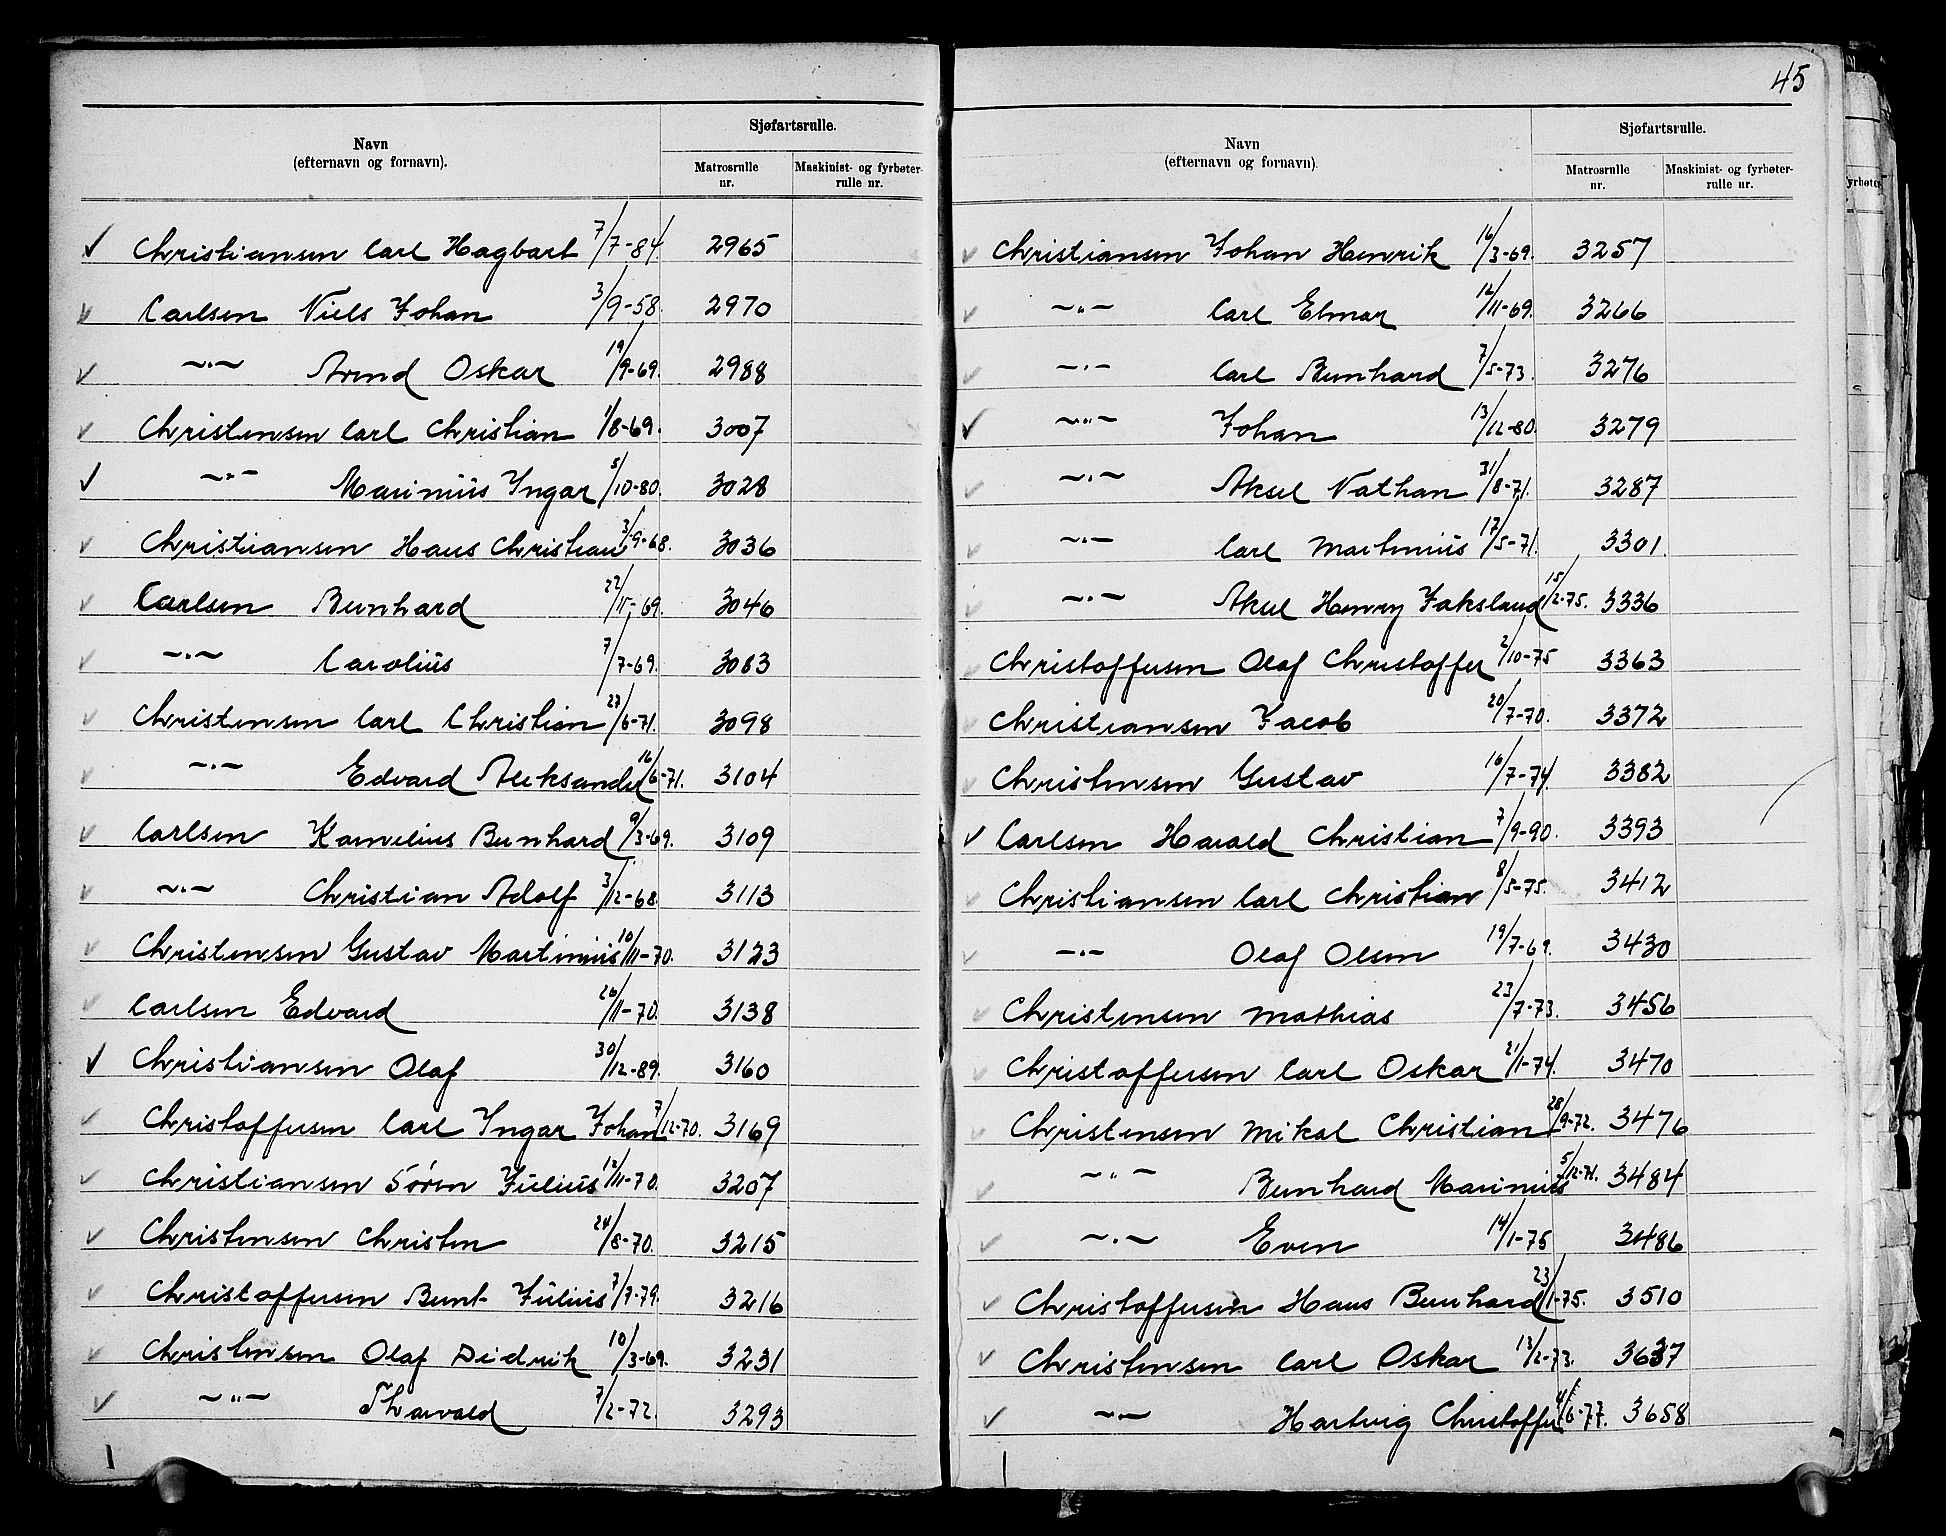 Navn
(efternavn og fornavn).
Sjøfartsrulle.
Matrosrulle nr.
Maskinist- og fyrbøter-rulle nr.
✓ Christiansen Carl Hagbart 7/7-84. 2965
✓ Carlsen Niels Johan 3/9-58. 2970
✓ ~·~ Arend Oskar 19/9-69. 2988
✓ Christensen Carl Christian 1/8-69. 3007
✓ ~"~ Marinius Yngar 5/10-80. 3028
✓ Christiansen Hans Christian 3/9-68. 3036
✓ Carlsen Bernhard 22/11-69. 3046
✓ ~·~ Carolius 7/7-69. 3083
✓ Christensen Carl Christian 27/6-71. 3098
✓ ~·~ Edvard Aleksander 16/6-71. 3104
✓ Carlsen Kornelius Bernhard 9/3-69. 3109
✓ ~·~ Christian Adolf 3/12-68. 3113
✓ Christensen Gustav Martinius 10/11-70. 3123
✓ Carlsen Edvard 26/11-70. 3138
✓ Christiansen Olaf 30/12-89. 3160
✓ Christoffersen Carl Yngar Johan 7/12-70. 3169
✓ Christiansen Sören Julius 12/11-70. 3207
✓ Christensen Christen 24/8-70. 3215
✓ Christoffersen Bernt Julius 7/7-79. 3216
✓ Christensen Olaf Didrik 10/3-69. 3231
✓ ~"~ Tharvald 7/2-72. 3293
1
45
Navn
(efternavn og fornavn).
Sjøfartsrulle.
Matrosrulle nr.
Maskinist- og fyrbøter-rulle nr.
✓ Christiansen Johan Henrik 16/3-69. 3257
✓ ~"~ Carl Elmar 16/11-69. 3266
✓ ~·~ Carl Bernhard 7/5-73. 3276
✓ ~"~ Johan 13/12-80. 3279
✓ ~·~ Aksel Nathan 31/8-71. 3287
✓ ~·~ Carl Martinius 17/5-71. 3301.
✓ ~·~ Aksel Henry Foksland 15/2-75. 3336
✓ Christoffersen Olaf Christoffer 2/10-75 3363
✓ Christiansen Jacob 20/7-70. 3372
✓ Christensen Gustav 16/7-74. 3382
✓ Carlsen Harald Christian 7/9-90. 3393
✓ Christiansen Carl Christian 8/5-75. 3412
✓ ~·~ Olaf Olsen 19/7-69. 3430
✓ Christensen Mathias 23/7-73. 3456
✓ Christoffersen Carl Oskar 21/1-74. 3470
✓ Christensen Mikal Christian 28/9-72. 3476
✓ ~"~ Bernhard Marinius 5/12-71. 3484
✓ ~·~ Even 14/1-75 3486
✓ Christoffersen Hans Bernhard 23/1-75. 3510
✓ Christensen Carl Oskar 13/2-73. 3637
✓ ~·~ Hartvig Christoffer 4/6-77. 3658
1